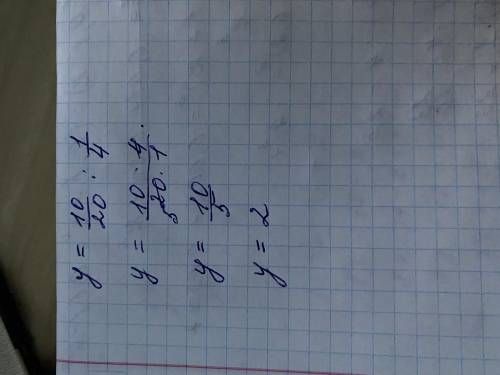 y = 10/20 : 1/4
y = 10 · 4 / 20 · 1
5
y = 10/5
y = 2